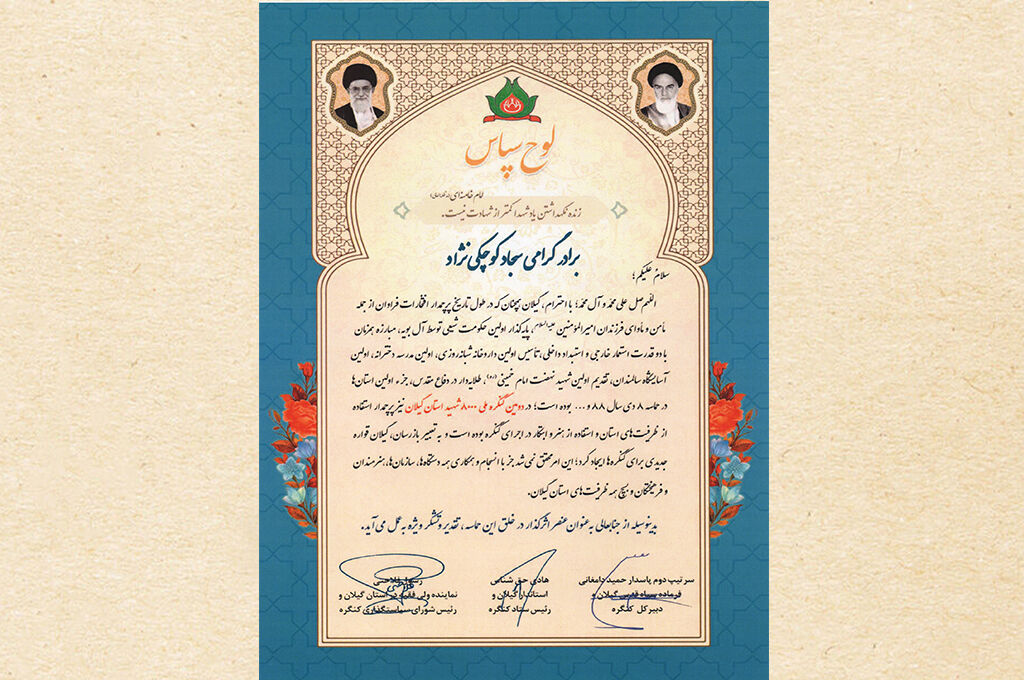 لوح سپاس
امام خامنه‌ای
زنده نگهداشتن یاد شهدا کمتر از شهادت نیست.
برادر گرامی سجاد کوچکی نژاد
سلام علیکم؛
اللهم صل علی محمد و آل محمد؛ با احترام، گیلان همچنان که در طول تاریخ پرچمدار افتخارات فراوان از جمله
مأمن و مأوای فرزندان امیرالمؤمنین علیه‌السلام، پایه‌گذار اولین حکومت شیعی توسط آل بویه، مبارزه همزمان
با دو قدرت استعمار خارجی و استبداد داخلی، تأسیس اولین داروخانه شبانه‌روزی، اولین مدرسه دخترانه، اولین
آسایشگاه سالمندان، تقدیم اولین شهید نهضت امام خمینی (ره)، طلایه‌دار در دفاع مقدس، جزء اولین استان‌ها
در حماسه ۸ دی سال ۸۸ و ... بوده است؛ در دومین کنگره ملی ۸۰۰۰ شهید استان گیلان نیز پرچمدار استفاده
از ظرفیت‌های استان و استفاده از هنر و ابتکار در اجرای کنگره بوده است و به تعبیر بازرسان، گیلان قواره
جدیدی برای کنگره‌ها ایجاد کرد؛ این امر محقق نمی‌شد جز با انسجام و همکاری همه دستگاه‌ها، سازمان‌ها، هنرمندان
و فرهیختگان و بسیج همه ظرفیت‌های استان گیلان.
بدینوسیله از جنابعالی به‌عنوان عنصر اثرگذار در خلق این حماسه، تقدیر و تشکر ویژه به‌عمل می‌آید.
سرتیپ دوم پاسدار حمید دامغانی
فرمانده سپاه قدس گیلان و
دبیر کل کنگره
هادی حق شناس
استاندار گیلان و
رئیس ستاد کنگره
رسول فلاحتی
نماینده ولی فقیه در استان گیلان و
رئیس شورای سیاستگذاری کنگره